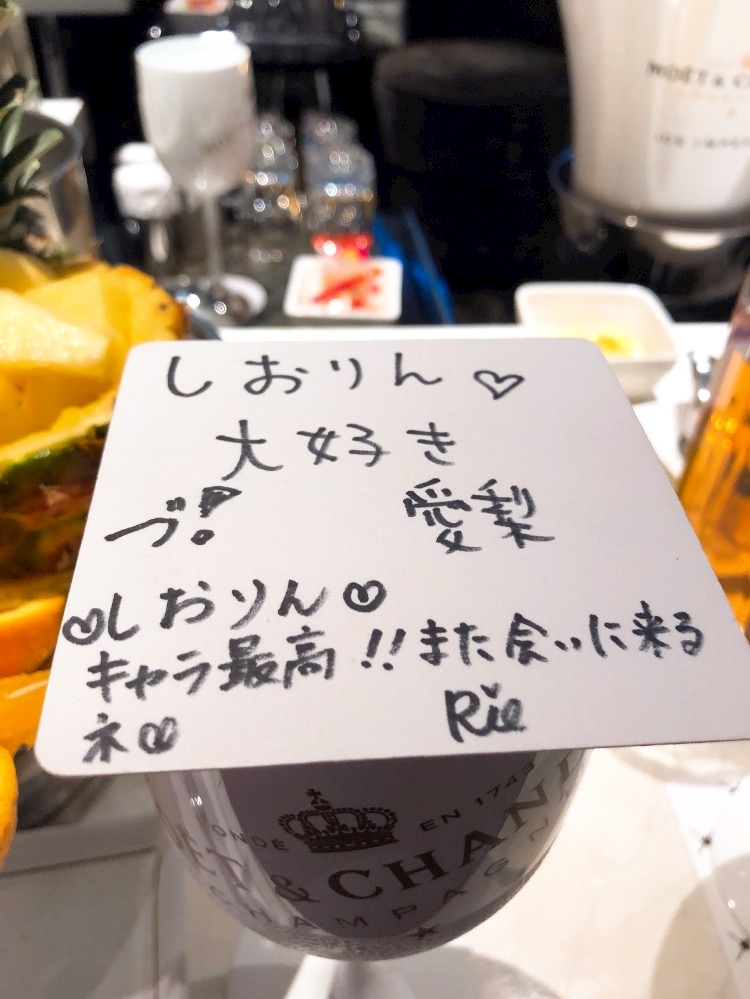 しおりん♡
大好き
ブ! 愛梨
♡しおりん♡
キャラ最高!!また会いに来る
ネ♡ Rie
MOËT & C
ONDÉ EN 1743
ËT & CHAN
CHAMPAGN